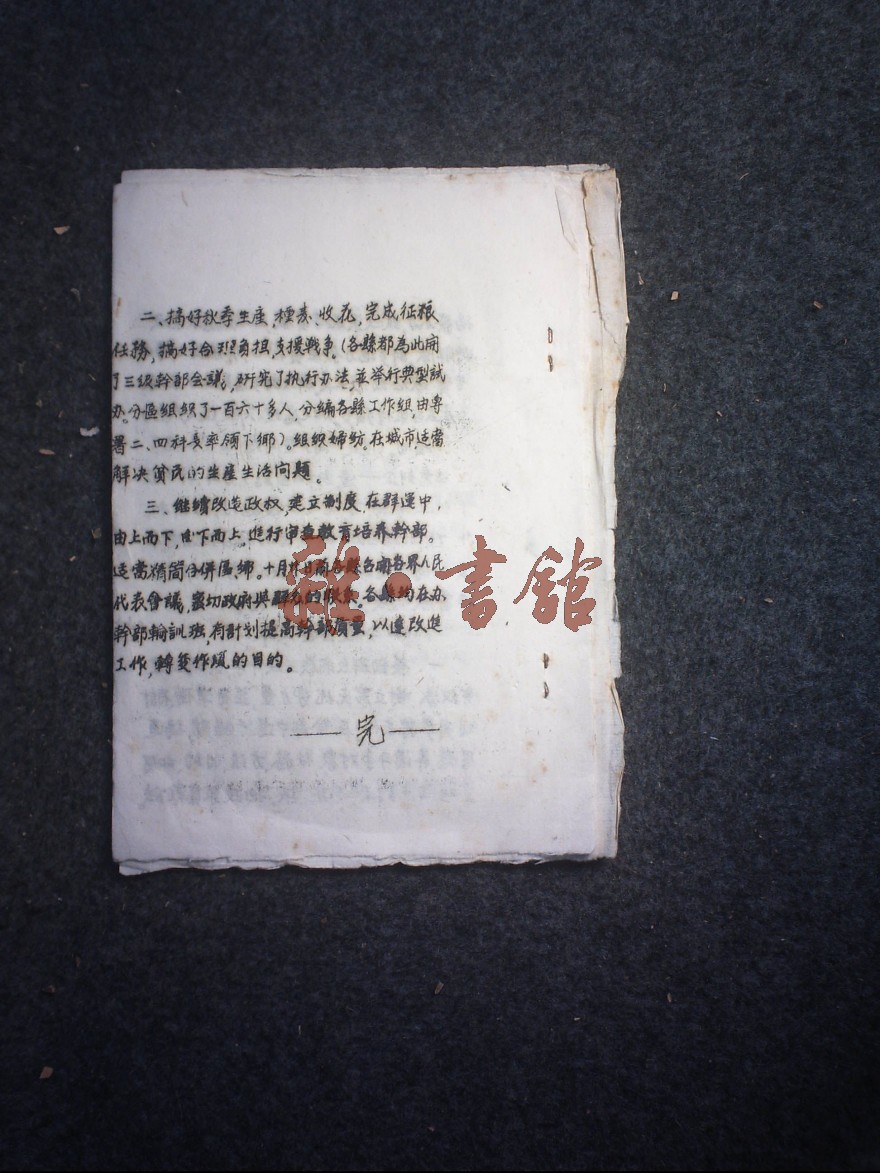 二、搞好秋季生産,種麦、收花,完成征粮
任務,搞好合理負担,支援戰争。(各縣都為此開
了三級幹部会議,研究了执行办法,並举行典型試
办。分區組织了一百六十多人,分編各縣工作組,由専
署二、四科長率領下鄉)。組织婦纺。在城市适當
解决貧民的生産生活问題。
三、継續改造政权,建立制度,在群運中,
由上而下,由下而上,進行審查教育培养幹部。
适當精简合併區、鄉。十月廿日前各縣召開各界人民
代表會議,密切政府與群众的联系。各縣均在办
幹部輪訓班,有計划提高幹部质量,以達改進
工作,轉変作风的目的。
——完——
雜·書館